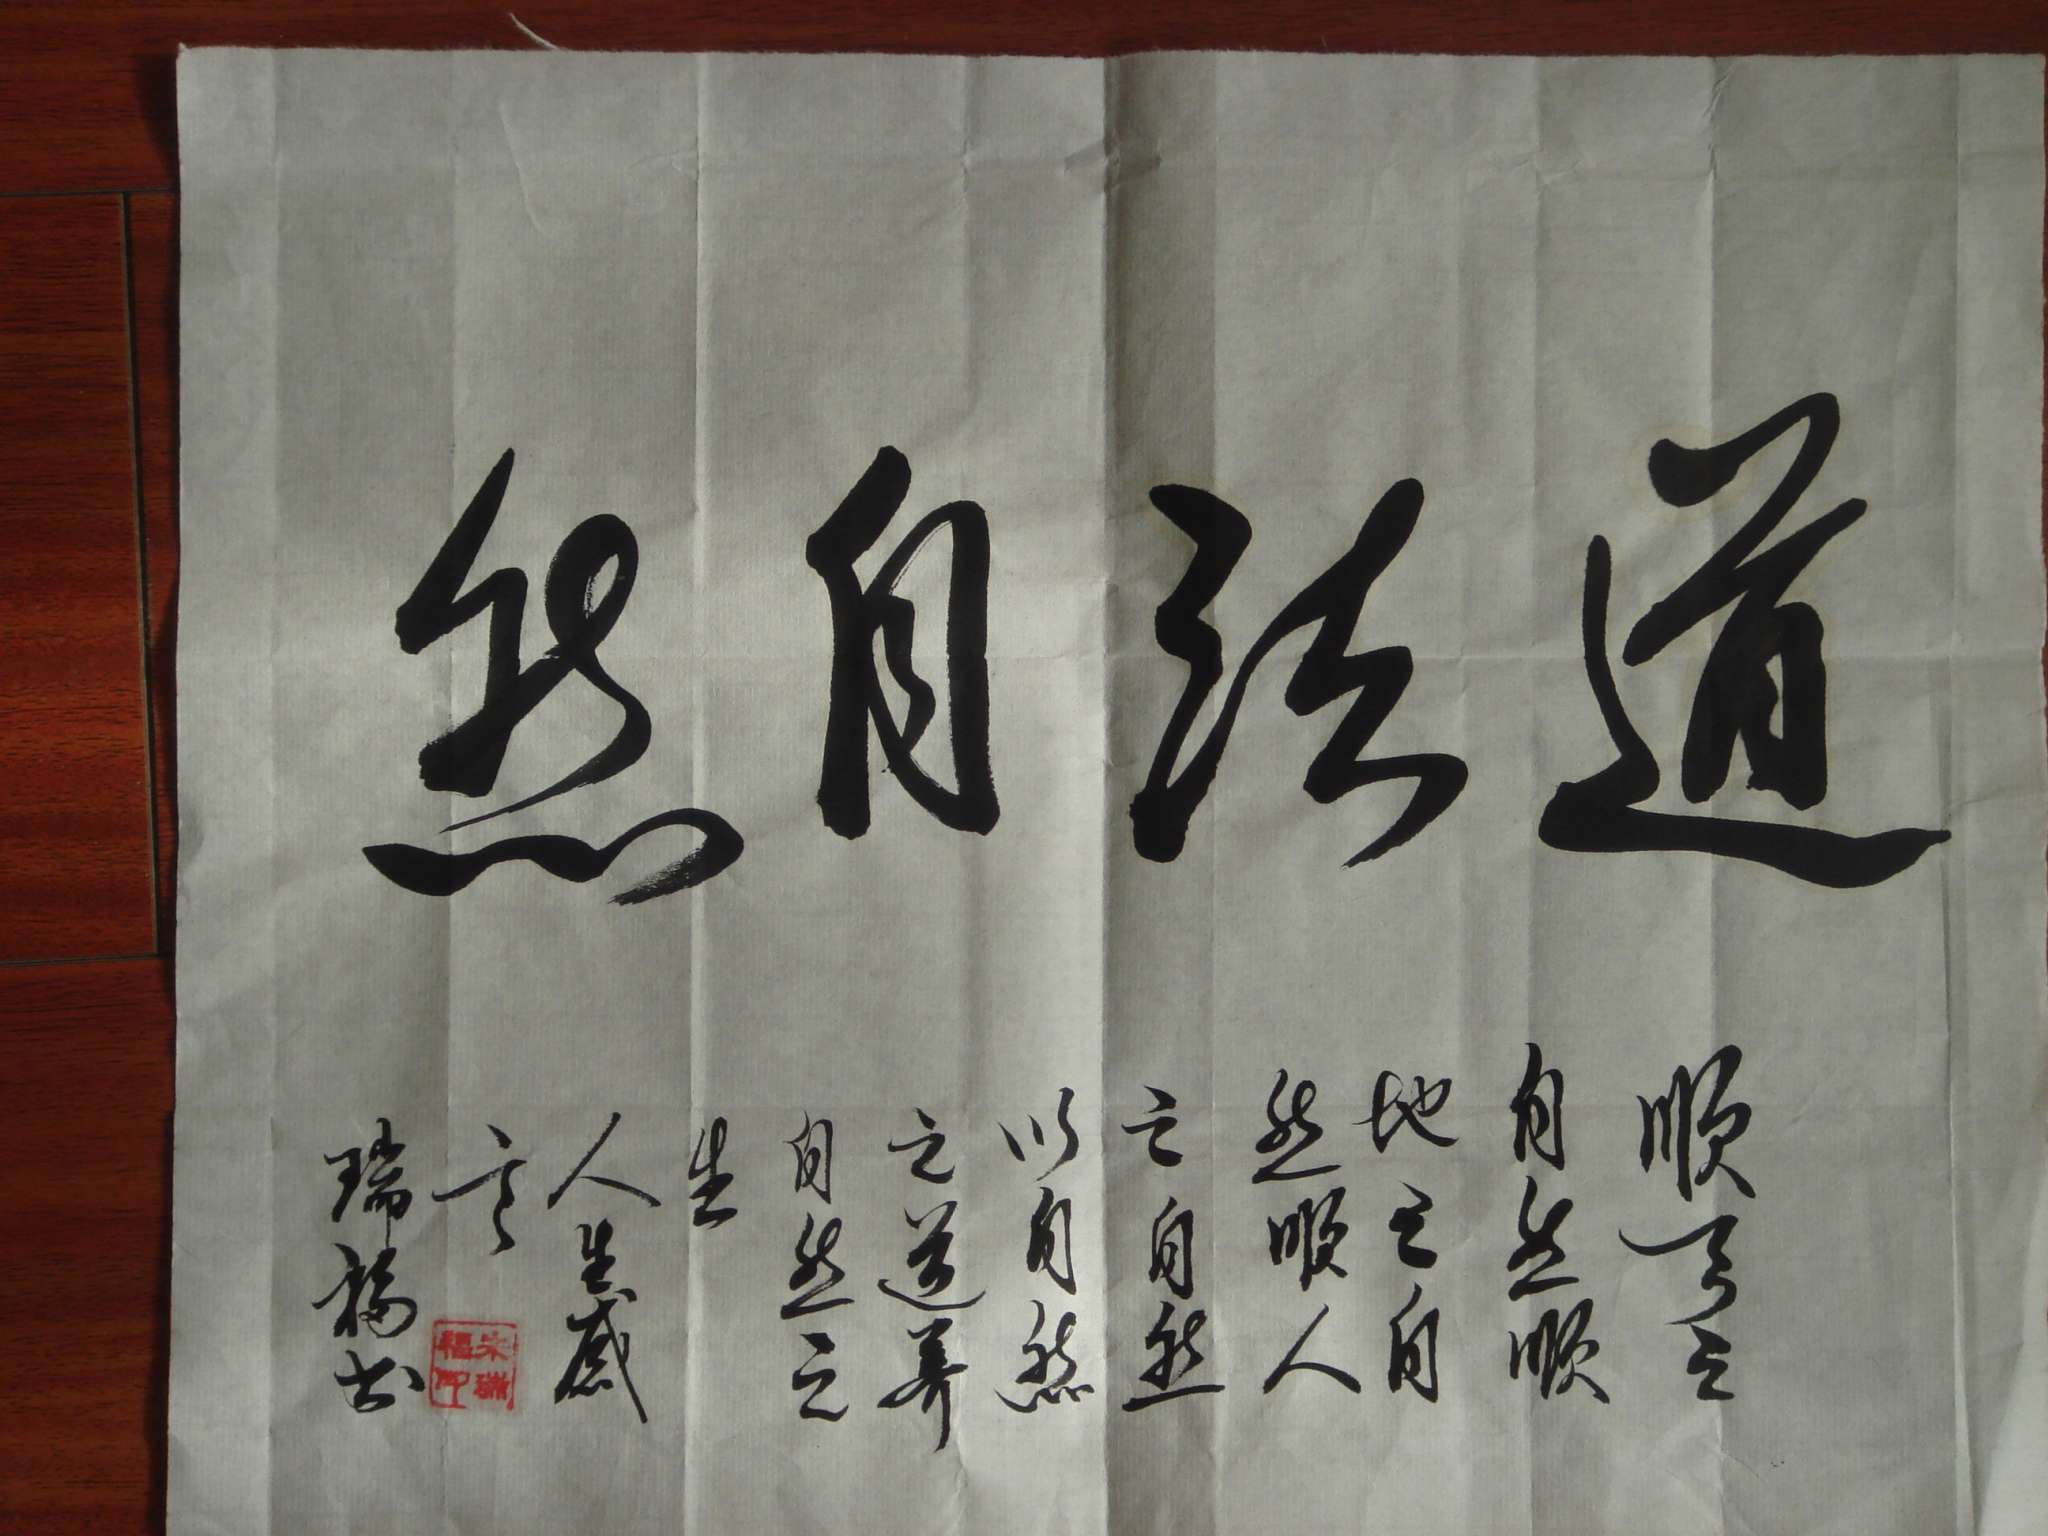 道法自然
顺天之
自然顺
地之自
然顺人
之自然
以自然
之道养
自然之
生
人生感
言
瑞福书
宋瑞
福印